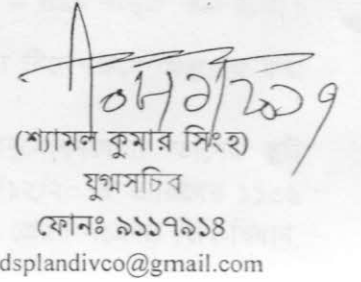 (শ্যামল কুমার সিংহ)
যুগ্মসচিব
ফোনঃ ৯১১৭৯১৪
dsplandivco@gmail.com